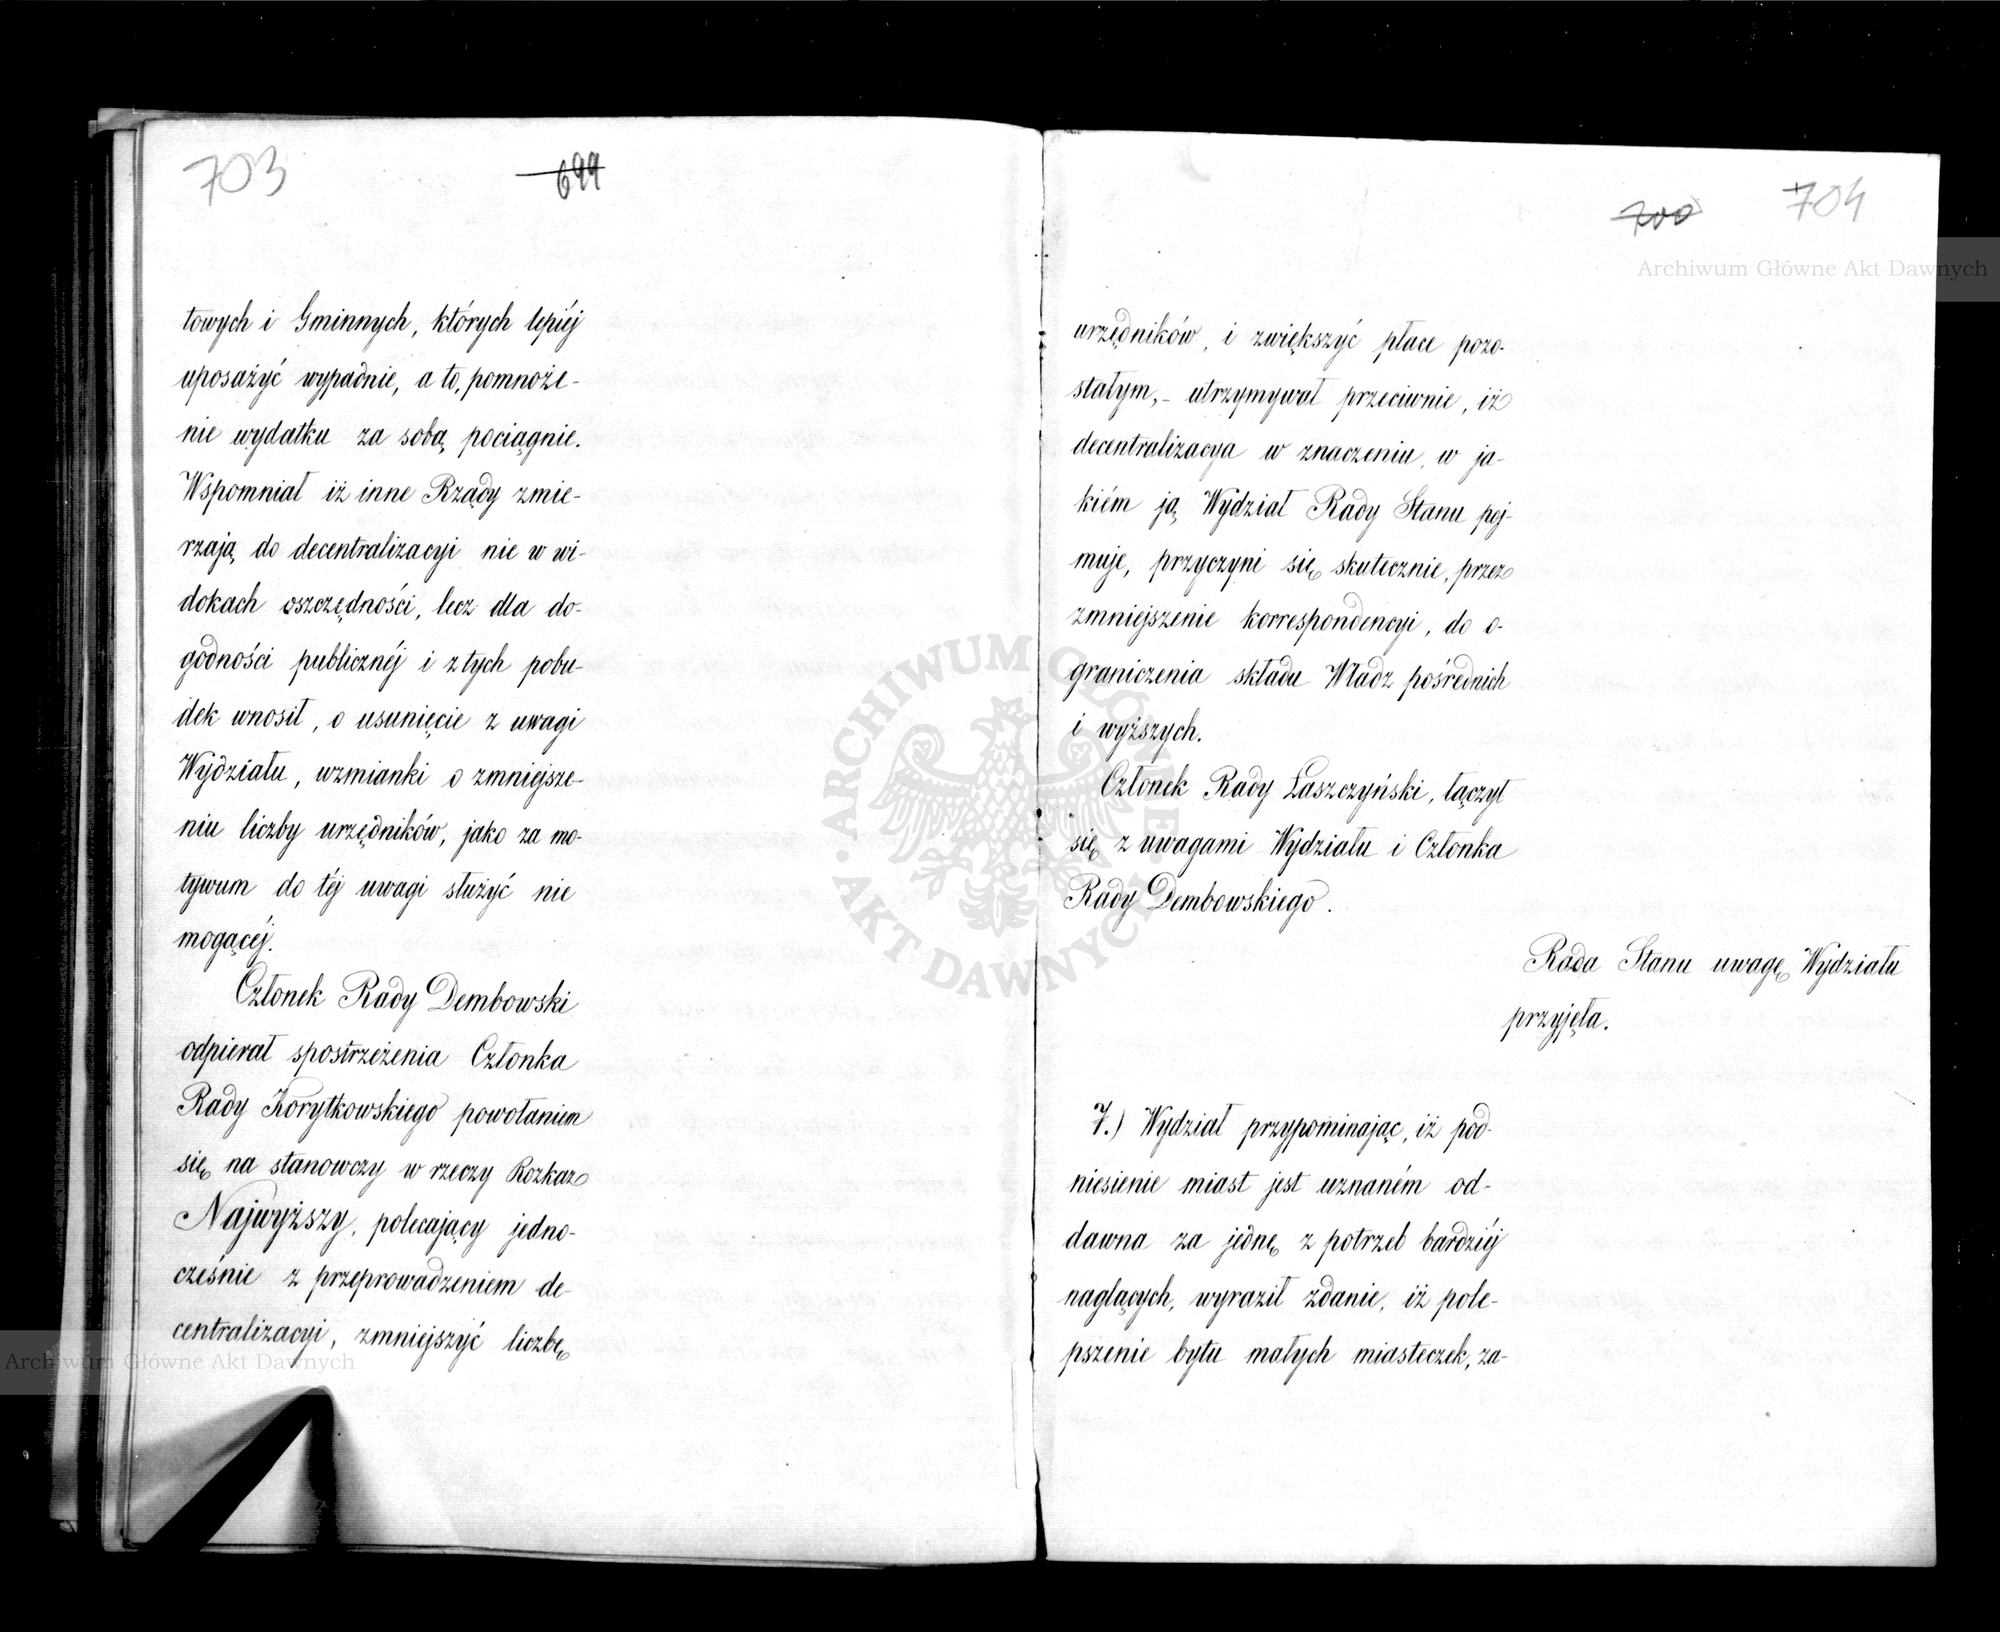 703
699
towych i Gminnych, których lepiéj
uposażyć wypadnie, a to, pomnoże-
nie wydatku za sobą pociągnie.
Wspomniał iż inne Rządy zmie-
rzają do decentralizacyi nie w wi-
dokach oszczędności, lecz dla do-
godności publicznéj i z tych pobu-
dek wnosił, o usunięcie z uwagi
Wydziału, wzmianki o zmniejsze-
niu liczby urzędników, jako za mo-
tywum do téj uwagi służyć nie
mogącéj.
Członek Rady Dembowski
odpierał spostrzeżenia Członka
Rady Korytkowskiego powołaniem
się na stanowczy w rzeczy Rozkaz
Najwyższy, polecający jedno-
cześnie z przeprowadzeniem de-
centralizacyi, zmniejszyć liczbę
Archiwum Główne Akt Dawnych
700
704
Archiwum Główne Akt Dawnych
urzędników, i zwiększyć płace pozo-
stałym,- utrzymywał przeciwnie, iż
decentralizacya w znaczeniu, w ja-
kiém ją Wydział Rady Stanu poj-
muje, przyczyni się skutecznie, przez
zmniejszenie korrespondencyi, do o-
graniczenia składu Władz pośrednich
i wyższych.
Członek Rady Łaszczyński, łączył
się z uwagami Wydziału i Członka
Rady Dembowskiego.
Rada Stanu uwagę Wydziału
przyjęła.
7.) Wydział przypominając, iż pod-
niesienie miast jest uznaném od-
dawna za jednę z potrzeb bardziéj
naglących, wyraził zdanie, iż pole-
pszenie bytu małych miasteczek, za-
ARCHIWUM GŁÓWNE
AKT DAWNYCH